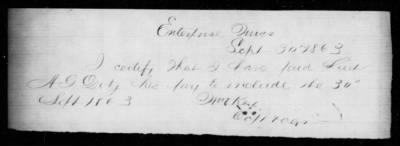 Enterprise Miss
Sept 30" 1863
I certify that I have paid Lieut
A. G. his pay to include the 30"
Sept 1863
Capt